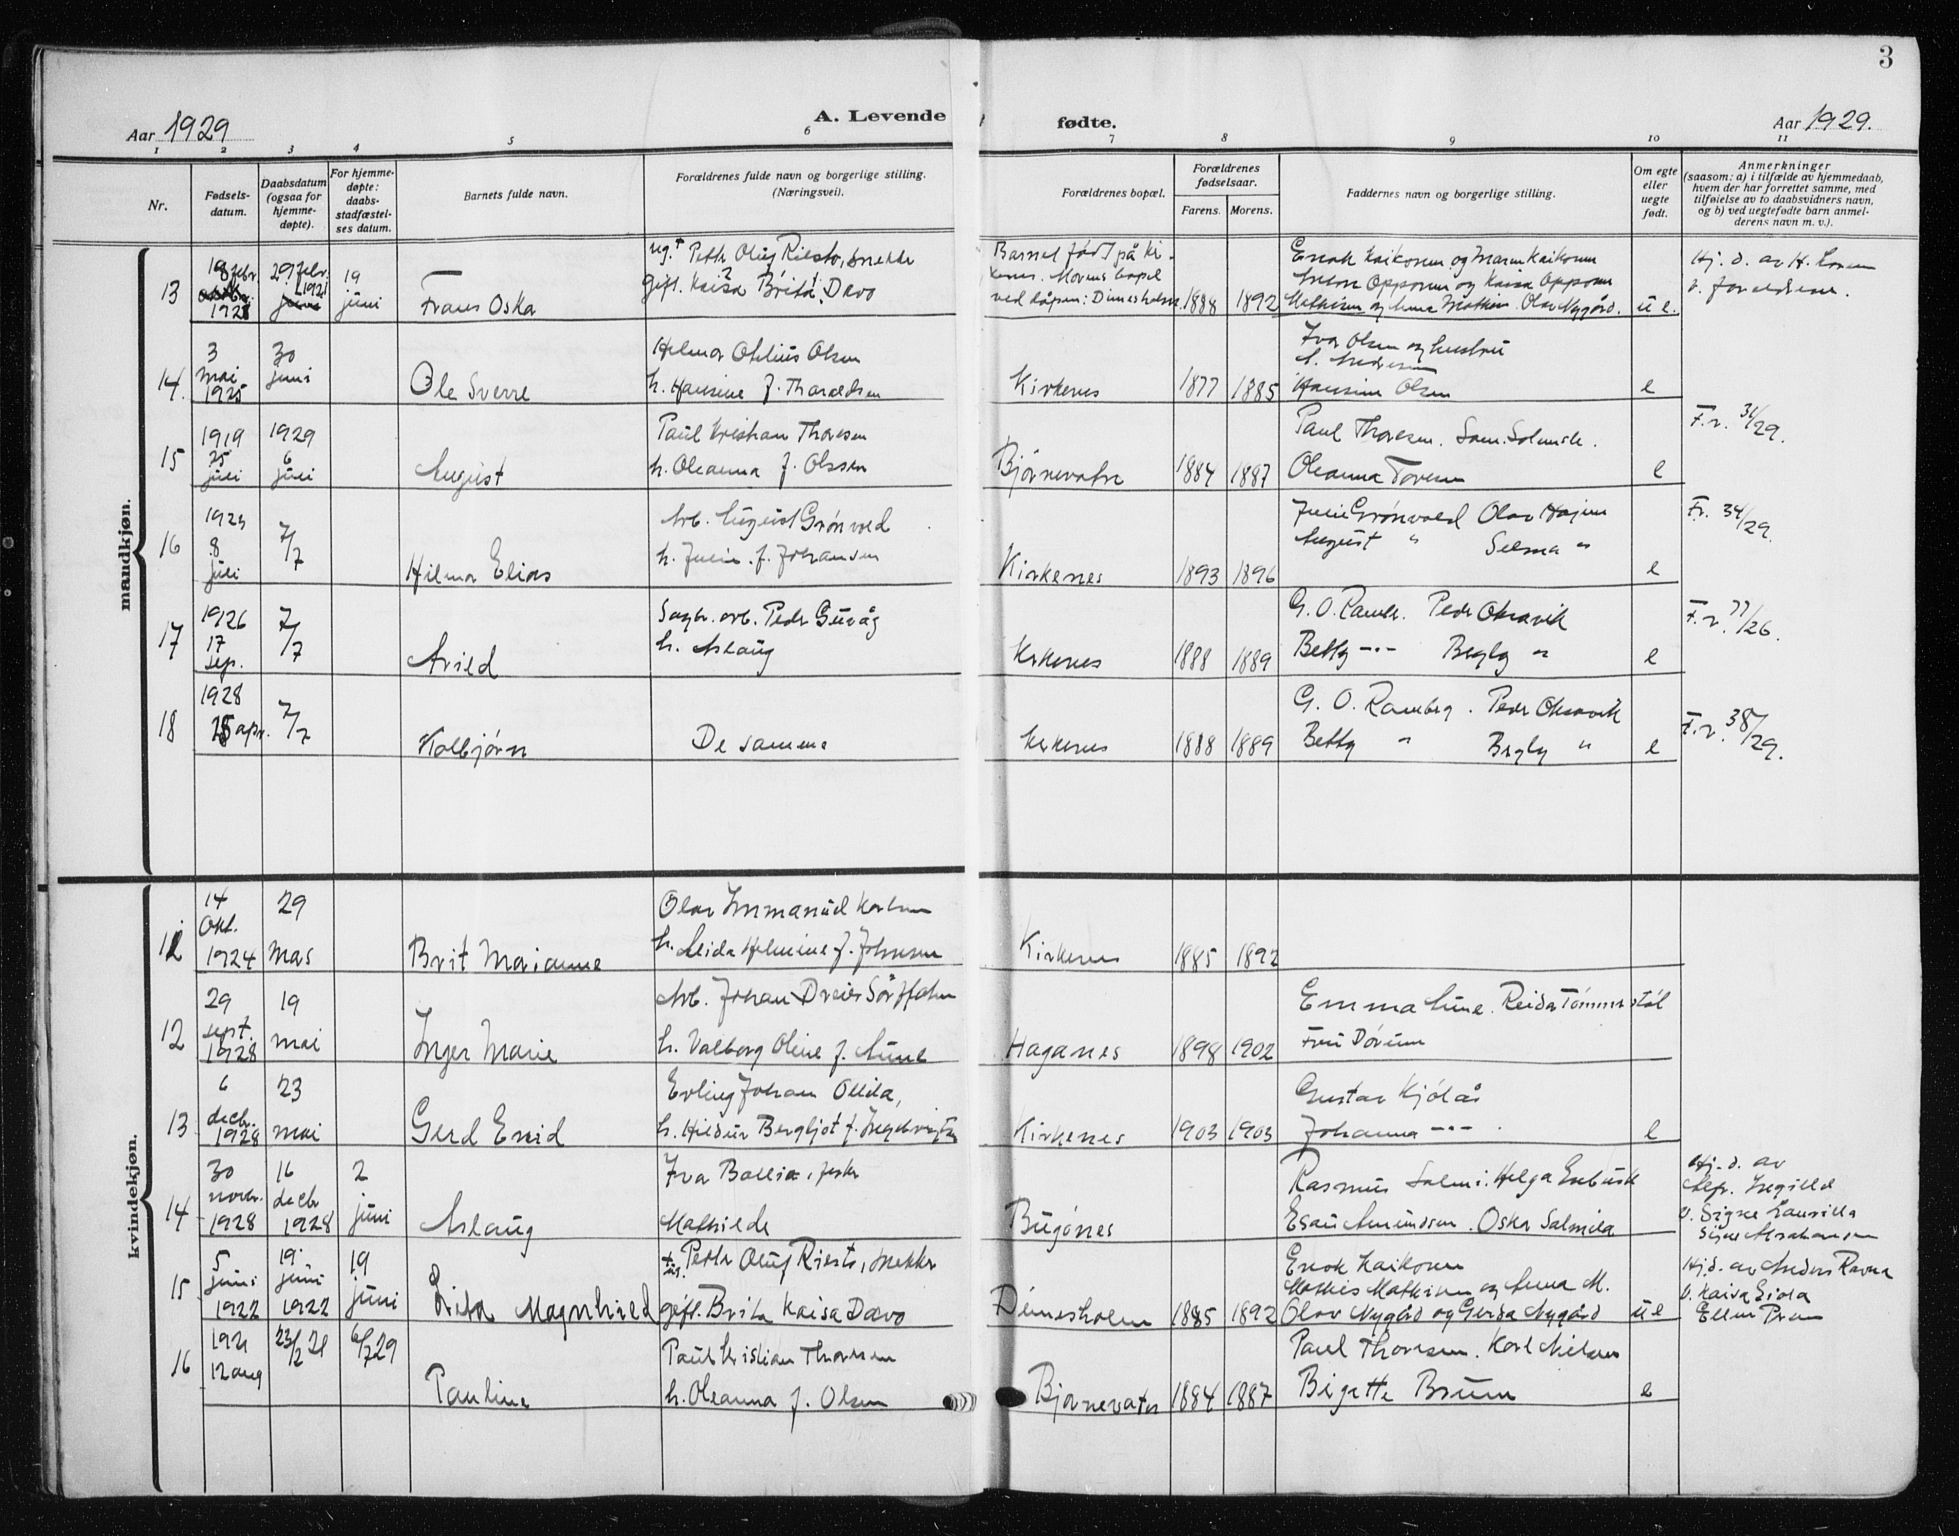 3
Aar 1929
A. Levende
fødte.
Aar 1929.
1 2 3 4 5 6 7 8 9 10 11
Nr.
Fødsels-
datum.
Daabsdatum
(ogsaa for
hjemme-
døpte).
For hjemme-
døpte:
daabs-
stadfæstel-
ses datum.
Barnets fulde navn.
Forældrenes fulde navn og borgerlige stilling.
(Næringsvei).
Forældrenes bopæl.
Forældrenes
fødselsaar.
Farens. Morens.
Faddernes navn og borgerlige stilling.
Om egte
eller
uegte
født.
Anmerkninger
(saasom: a) i tilfælde av hjemmedaab,
hvem der har forrettet samme, med
tilføielse av to daabsvidners navn,
og b) ved uegtefødte barn anmel-
derens navn m. v.).
mandkjøn.
13
febr.
1921
29 febr.
1921
19
juni
Frans Oska
ug. Petter Oluf Riesto, snekker
gift. Kaisa Brita Davo
Barnet født på Ki-
kenes. Morens bopel
ved dåpen: Dimesholm
1888 1892
Enok Kaikonen og Maren Kaikonen
Anton Opponen og Kaisa Opponen
Mathisen og Anna Mathisen. Olav Nygård.
u e.
Hj. d. av H.
v. foreldrene.
14.
3
mai
1925
30
juni
Ole Sverre
Helmer Othlius Olsen
h. Hansine f. Tharaldsen
Kirkenes
1877 1885
Ivar Olsen og hustru
Hansine Olsen
e
15
1919
25
juli
1929
6
juli
August
Paul Kristian Thoresen
h. Oleanna f. Olssen
Bjørnevatn
1884 1887
Paul Thoresen.
Oleanna Toresen
e
F.v. 31/29.
16
8
juli
7/7
Hilmar Elias
Arb. August Grønvold
h. Julie f. Johansen
Kirkenes
1893 1896
Julie Grønvold Olav Hagen
August " Selma "
e
Fr. 34/29.
17
1926
17
sep.
7/7
Arild
arb. Peder Guvåg
h. Aslaug
Kirkenes
1888 1889
G. O. Ramb. Peder Oksavik
Betty -"- Bergly "
e
F.v. 77/26.
18
1928
apr.
7/7
Kolbjørn
De samme
Kirkenes
1888 1889
G. O. Ramberg. Peder Oksavik
Betty " Bergly "
e
F.v. 38/29.
kvindekjøn.
14
Okt.
1924
29
mas
Brit Marianne
Olav Immanuel Karlsen
h. Alida Helmine f. Johnsen
Kirkenes
1885 1892
12
29
sept.
1928
19
mai
Inger Marie
Arb. Johan Dreier Sørffolm
h. Valborg Oline f. Aune
Haganes
1898 1902
Emma Aune. Reidar Tømmerstøl
Fru Dørum
13
6
decb.
1928
23
mai
Gerd Enid
Erling Johan Ollila,
h. Hildur Bergljot f. Ingebrigtsen
Kirkenes
1903 1903
Gustav Kjølås
Johanna -"-
e
14
30
novbr.
1928
16
decb
1928
2
juni
Aslaug
Ivar Ballia, fisker
Mathilde
Bugönes
Rasmus Salmi. Helga Enbusk
Esau Amundsen. Oskar Salmila
Hj. d. av
Alfr. Ingilld
v. Signe Laurilla
Signe Abrahamsen
15
5
juni
1922
19
juni
1922
19
juni
Magnhild
ug. Petter Oluf Riesto, snekker
gift. Brita Kaisa Davo
Dimesholm
1885 1892
Enok Kaikonen
Mathis Mathisen og Anna M.
Olav Nygård og Gerda Nygård
u e
Hj.d. av Anders Ravna
v. Kaisa Siola
Ellen
16
1921
12 aug
23/2 21
6/7 29
Pauline
Paul Kristian Thoresen
h. Oleanna f. Olsen
Bjørnevatn
1884 1887
Paul Thoresen. Karl Nilsen
Birgitte Brum
e